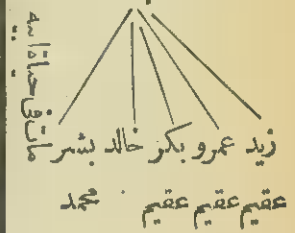 زيد عمرو بكر خالد بشر
عقيم عقيم عقيم محمد
مات فى حياة ابيه